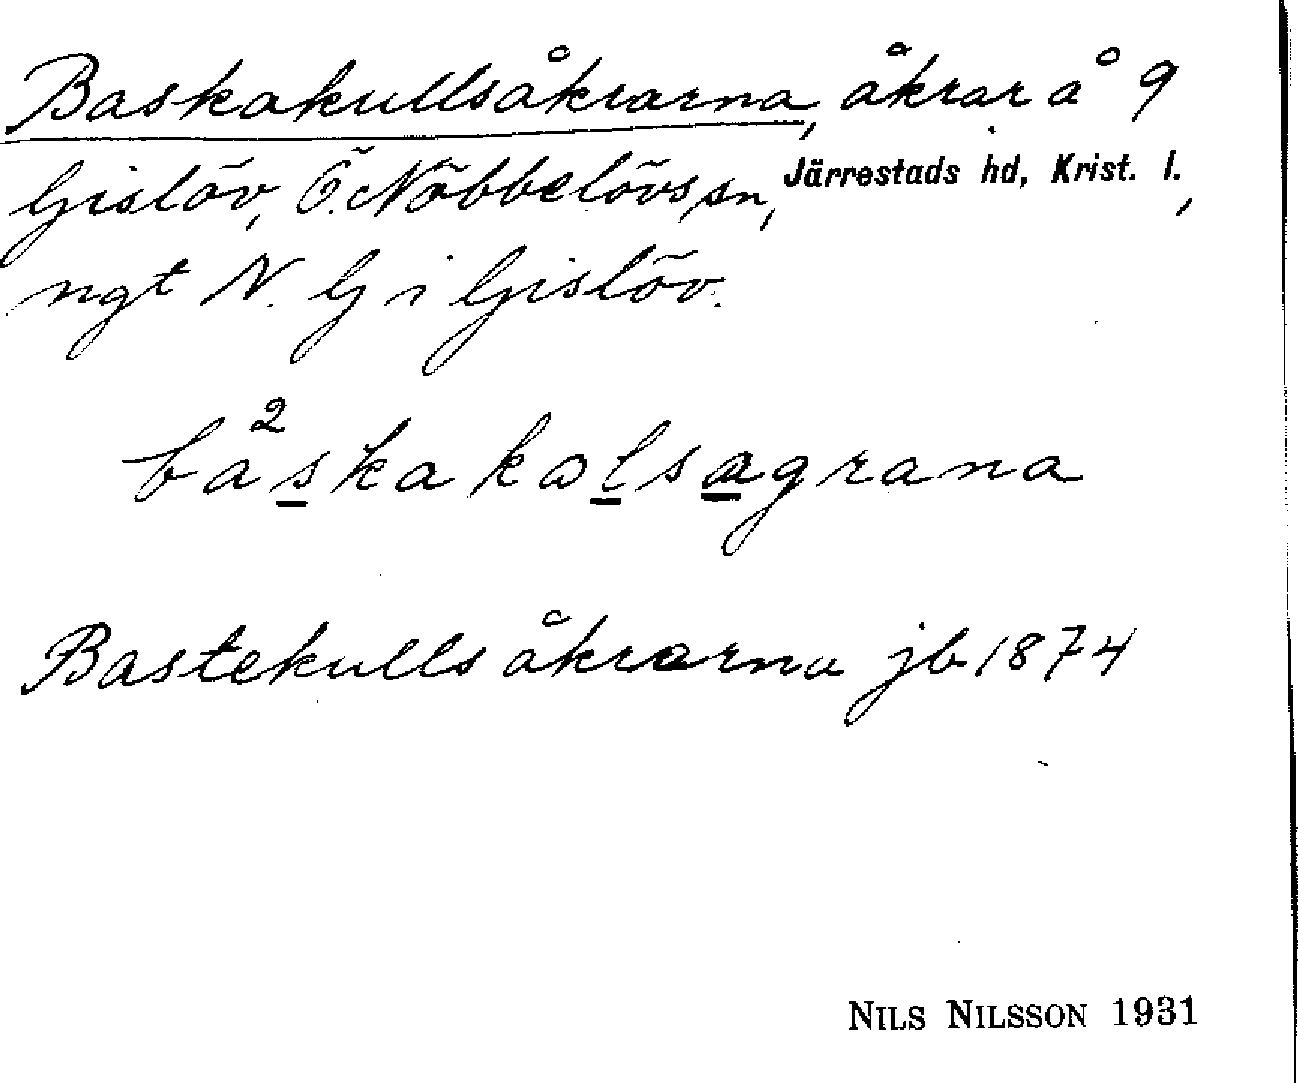 Baskakullsåkrarna, åkrar å 9
Gislöv, Ö. Nöbbelövs sn, Järrestads hd, Krist. l.,
ngt N. G i Gislöv.
ba²skakolsagrana
Bastekullsåkrarna jb 1874
NILS NILSSON 1931